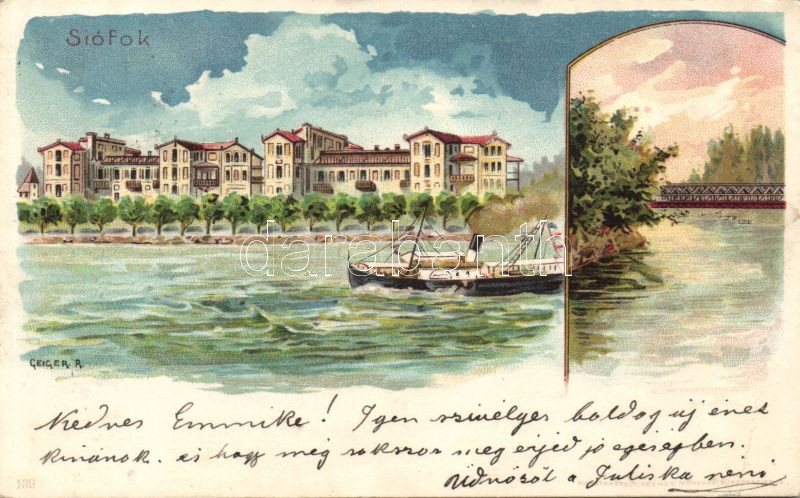 Siófok
darabanth
GEIGER. R.
Kedves Emmike! Igen szivélyes boldog új évet
kivánok. és hogy még sokszor meg érjed jó egeségben.
Üdvözöl a Juliska néni
139